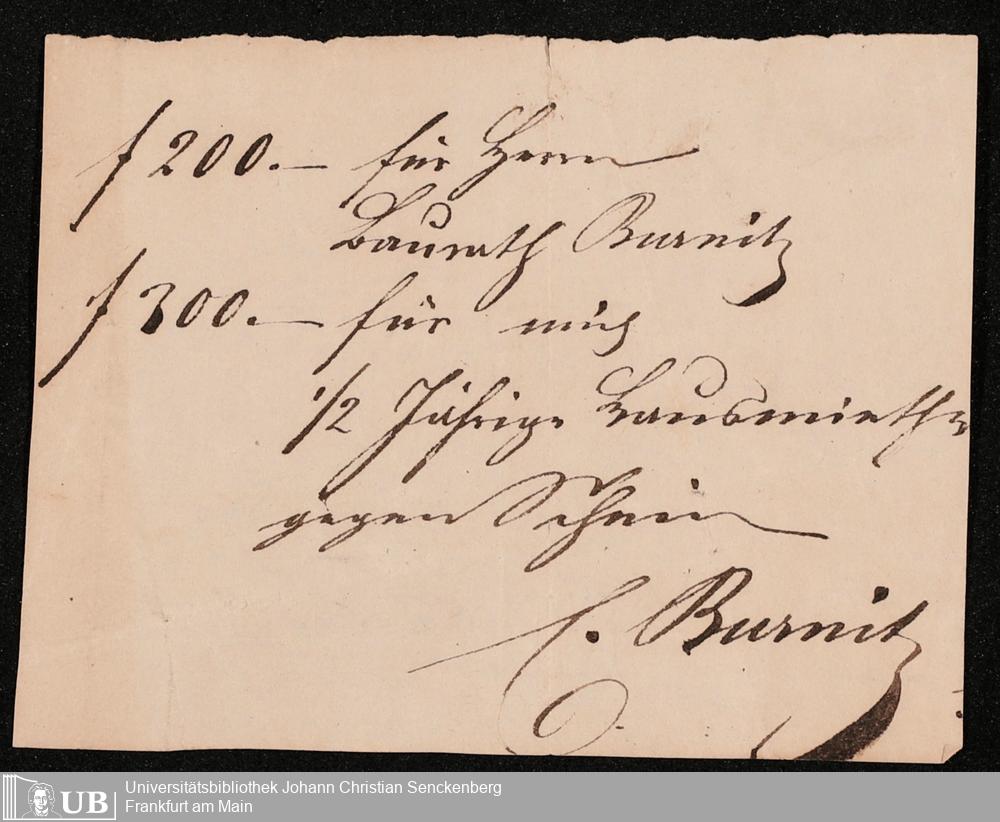 f 200.— für Herrn
Baurath Burnitz
f 300.— für mich
1/2 Jährige Hausmiethe
gegen Schein
C. Burnitz
UB
Universitätsbibliothek Johann Christian Senckenberg
Frankfurt am Main